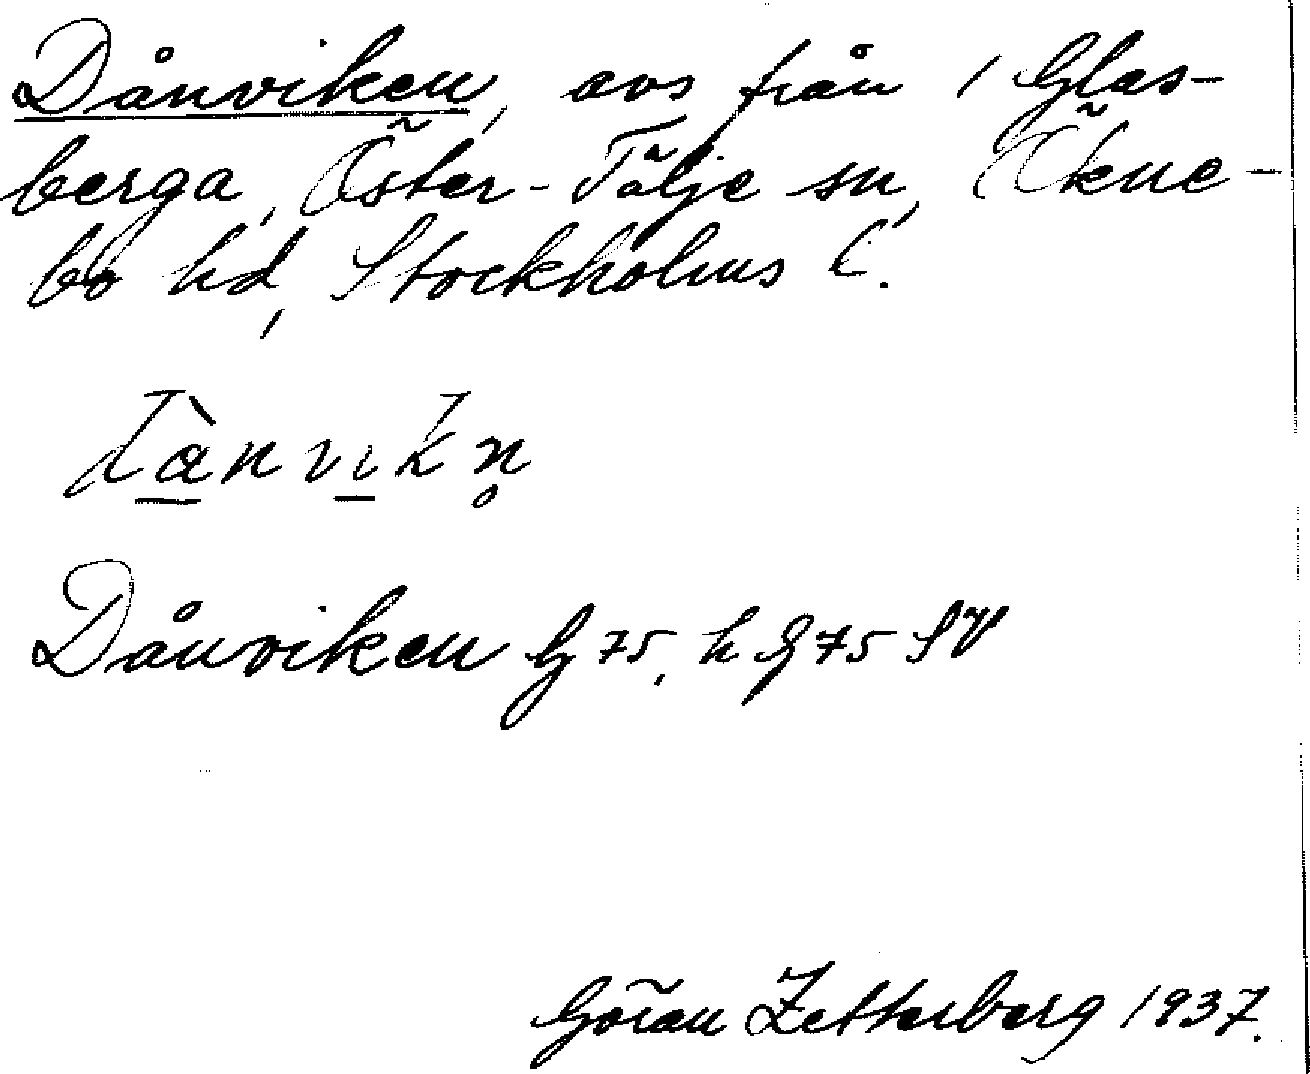 Dånviken, avs från 1 Glas-
berga, Öster-Tälje sn, Ökne-
bo hd, Stockholms l.
dànvikn̥
Dånviken G 75, h G 75 SV
Göran Zetterberg 1937.